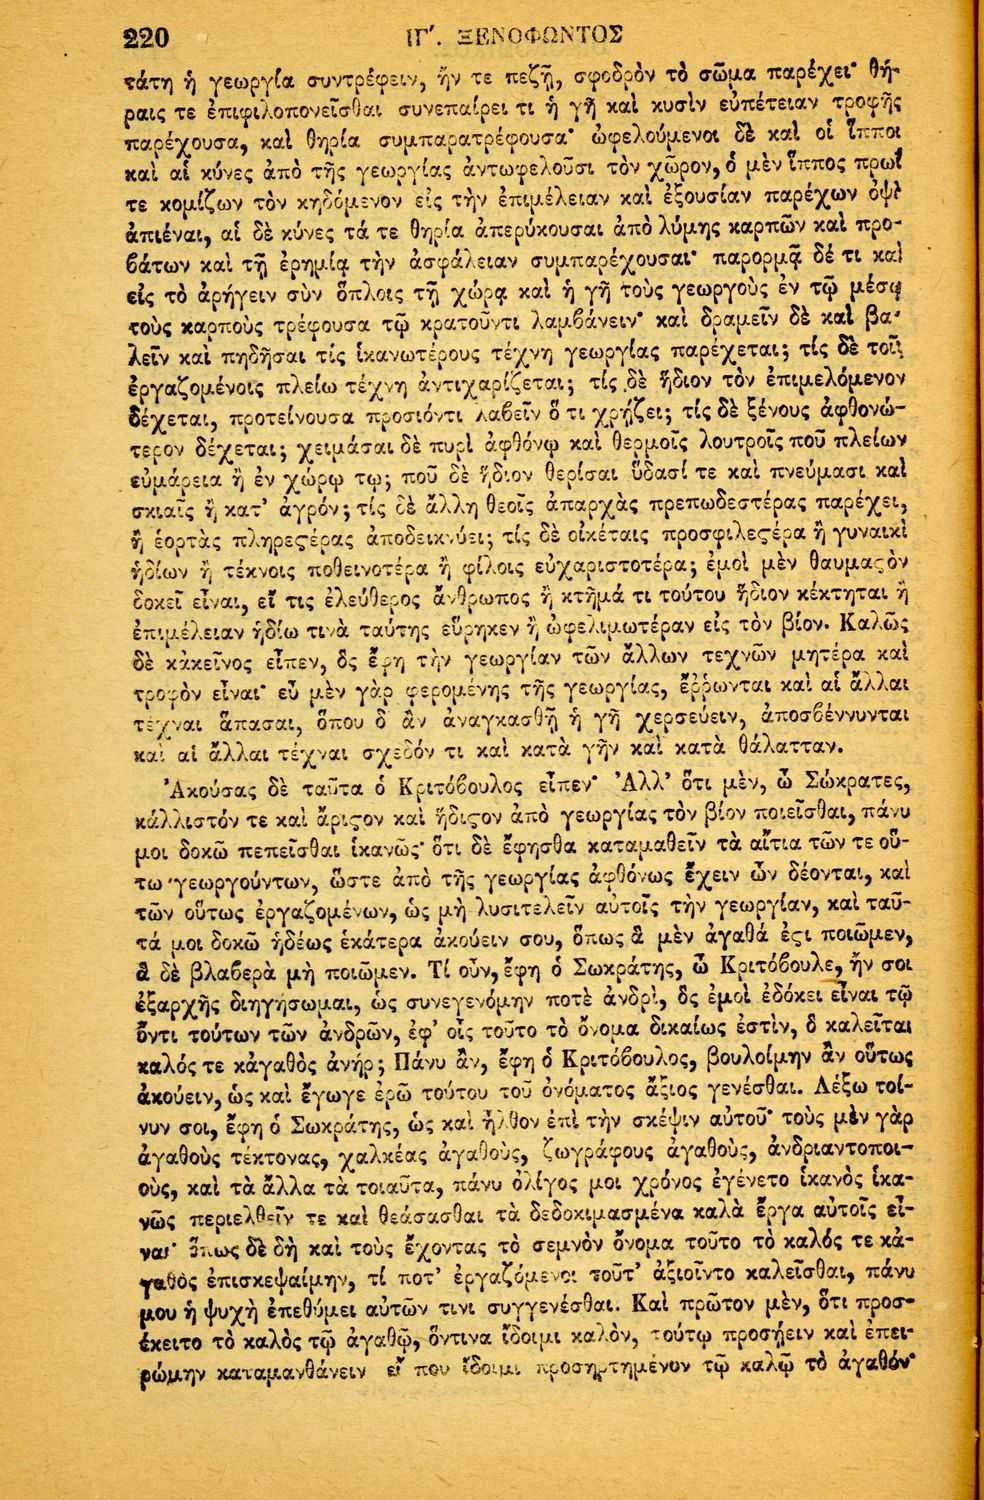 220 ΙΓ΄. ΞΕΝΟΦΩΝΤΟΣ
τάτη ἡ γεωργία συντρέφειν, ἤν τε πεζῇ, σφοδρὸν τὸ σῶμα παρέχει· θή-
ραις τε ἐπιφιλοπονεῖσθαι συνεπαίρει τι ἡ γῆ καὶ κυσὶν εὐπέτειαν τροφῆς
παρέχουσα, καὶ θηρία συμπαρατρέφουσα· ὠφελούμενοι δὲ καὶ οἱ ἵπποι
καὶ αἱ κύνες ἀπὸ τῆς γεωργίας ἀντωφελοῦσι τὸν χῶρον, ὁ μὲν ἵππος πρωΐ
τε κομίζων τὸν κηδόμενον εἰς τὴν ἐπιμέλειαν καὶ ἐξουσίαν παρέχων ὀψὲ
ἀπιέναι, αἱ δὲ κύνες τά τε θηρία ἀπερύκουσαι ἀπὸ λύμης καρπῶν καὶ προ-
βάτων καὶ τῇ ἐρημίᾳ τὴν ἀσφάλειαν συμπαρέχουσαι· παρορμᾷ δέ τι καὶ
εἰς τὸ ἀρήγειν σὺν ὅπλοις τῇ χώρᾳ καὶ ἡ γῆ τοὺς γεωργοὺς ἐν τῷ μέσῳ
τοὺς καρποὺς τρέφουσα τῷ κρατοῦντι λαμβάνειν· καὶ δραμεῖν δὲ καὶ βα-
λεῖν καὶ πηδῆσαι τίς ἱκανωτέρους τέχνη γεωργίας παρέχεται; τίς δὲ τοῖς
ἐργαζομένοις πλείω τέχνη ἀντιχαρίζεται; τίς δὲ ἥδιον τὸν ἐπιμελόμενον
δέχεται, προτείνουσα προσιόντι λαβεῖν ὅ τι χρῄζει; τίς δὲ ξένους ἀφθονώ-
τερον δέχεται; χειμάσαι δὲ πυρὶ ἀφθόνῳ καὶ θερμοῖς λουτροῖς ποῦ πλείων
εὐμάρεια ἢ ἐν χώρῳ τῳ; ποῦ δὲ ἥδιον θερίσαι ὕδασί τε καὶ πνεύμασι καὶ
σκιαῖς ἢ κατ' ἀγρόν; τίς δὲ ἄλλη θεοῖς ἀπαρχὰς πρεπωδεστέρας παρέχει,
ἢ ἑορτὰς πληρεϛέρας ἀποδεικνύει; τίς δὲ οἰκέταις προσφιλεϛέρα ἢ γυναικὶ
ἡδίων ἢ τέκνοις ποθεινοτέρα ἢ φίλοις εὐχαριστοτέρα; ἐμοὶ μὲν θαυμαϛὸν
δοκεῖ εἶναι, εἴ τις ἐλεύθερος ἄνθρωπος ἢ κτῆμά τι τούτου ἥδιον κέκτηται ἢ
ἐπιμέλειαν ἡδίω τινὰ ταύτης εὕρηκεν ἢ ὠφελιμωτέραν εἰς τὸν βίον. Καλῶς
δὲ κἀκεῖνος εἶπεν, ὃς ἔφη τὴν γεωργίαν τῶν ἄλλων τεχνῶν μητέρα καὶ
τροφὸν εἶναι· εὖ μὲν γὰρ φερομένης τῆς γεωργίας, ἔῤῥωνται καὶ αἱ ἄλλαι
τέχναι ἅπασαι, ὅπου δ' ἂν ἀναγκασθῇ ἡ γῆ χερσεύειν, ἀποσβέννυνται
καὶ αἱ ἄλλαι τέχναι σχεδόν τι καὶ κατὰ γῆν καὶ κατὰ θάλατταν.
Ἀκούσας δὲ ταῦτα ὁ Κριτόβουλος εἶπεν· Ἀλλ' ὅτι μὲν, ὦ Σώκρατες,
κάλλιστόν τε καὶ ἄριϛον καὶ ἥδιϛον ἀπὸ γεωργίας τὸν βίον ποιεῖσθαι, πάνυ
μοι δοκῶ πεπεῖσθαι ἱκανῶς· ὅτι δὲ ἔφησθα καταμαθεῖν τὰ αἴτια τῶν τε οὕ-
τω γεωργούντων, ὥστε ἀπὸ τῆς γεωργίας ἀφθόνως ἔχειν ὧν δέονται, καὶ
τῶν οὕτως ἐργαζομένων, ὡς μὴ λυσιτελεῖν αὐτοῖς τὴν γεωργίαν, καὶ ταῦ-
τά μοι δοκῶ ἡδέως ἑκάτερα ἀκούειν σου, ὅπως ἃ μὲν ἀγαθά ἐϛι ποιῶμεν,
ἃ δὲ βλαβερὰ μὴ ποιῶμεν. Τί οὖν, ἔφη ὁ Σωκράτης, ὦ Κριτόβουλε, ἤν σοι
ἐξαρχῆς διηγήσωμαι, ὡς συνεγενόμην ποτὲ ἀνδρὶ, ὃς ἐμοὶ ἐδόκει εἶναι τῷ
ὄντι τούτων τῶν ἀνδρῶν, ἐφ' οἷς τοῦτο τὸ ὄνομα δικαίως ἐστὶν, ὃ καλεῖται
καλός τε κἀγαθὸς ἀνήρ; Πάνυ ἂν, ἔφη ὁ Κριτόβουλος, βουλοίμην ἂν οὕτως
ἀκούειν, ὡς καὶ ἔγωγε ἐρῶ τούτου τοῦ ὀνόματος ἄξιος γενέσθαι. Λέξω τοί-
νυν σοι, ἔφη ὁ Σωκράτης, ὡς καὶ ἦλθον ἐπὶ τὴν σκέψιν αὐτοῦ· τοὺς μὲν γὰρ
ἀγαθοὺς τέκτονας, χαλκέας ἀγαθοὺς, ζωγράφους ἀγαθοὺς, ἀνδριαντοποι-
οὺς, καὶ τὰ ἄλλα τὰ τοιαῦτα, πάνυ ὀλίγος μοι χρόνος ἐγένετο ἱκανὸς ἱκα-
νῶς περιελθεῖν τε καὶ θεάσασθαι τὰ δεδοκιμασμένα καλὰ ἔργα αὐτοῖς εἶ-
ναι· ὅπως δὲ δὴ καὶ τοὺς ἔχοντας τὸ σεμνὸν ὄνομα τοῦτο τὸ καλός τε κἀ-
γαθὸς ἐπισκεψαίμην, τί ποτ' ἐργαζόμενοι τοῦτ' ἀξιοῖντο καλεῖσθαι, πάνυ
μου ἡ ψυχὴ ἐπεθύμει αὐτῶν τινι συγγενέσθαι. Καὶ πρῶτον μὲν, ὅτι προσ-
έκειτο τὸ καλὸς τῷ ἀγαθῷ, ὅντινα ἴδοιμι καλὸν, τούτῳ προσῄειν καὶ ἐπει-
ρώμην καταμανθάνειν εἴ που ἴδοιμι προσηρτημένον τῷ καλῷ τὸ ἀγαθόν·